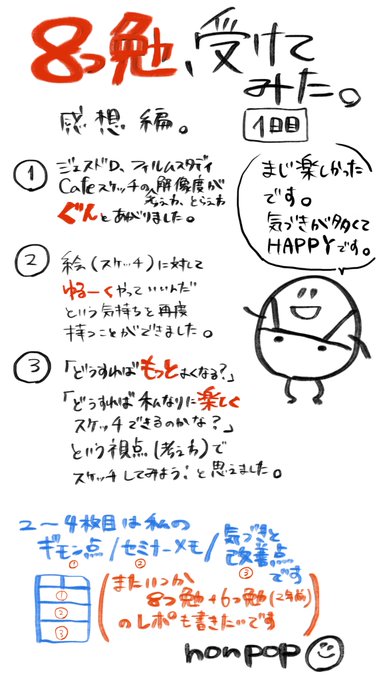 8つ勉、受けて
みた。
感想編。
1日目
① ジェスドD、フィルムスタディ
Cafeスケッチの解像度が
考え方、とらえ方
ぐんとあがりました。
まじ楽しかった
です。
気づきが多くて
HAPPYです。
② 絵(スケッチ)に対して
ゆるーくやっていいんだ
という気持ちを再度
持つことができました。
③「どうすればもっとよくなる?」
「どうすれば私なりに楽しく
スケッチできるのかな?」
という視点(考え方)で
スケッチしてみよう!と思えました。
2〜4枚目は私の
ギモン点/セミナーメモ/気づきと
改善点
① ② ③
です
①
②
③
(またいつか
8つ勉+6つ勉(2年前)
のレポも書きたいです)
nonpop